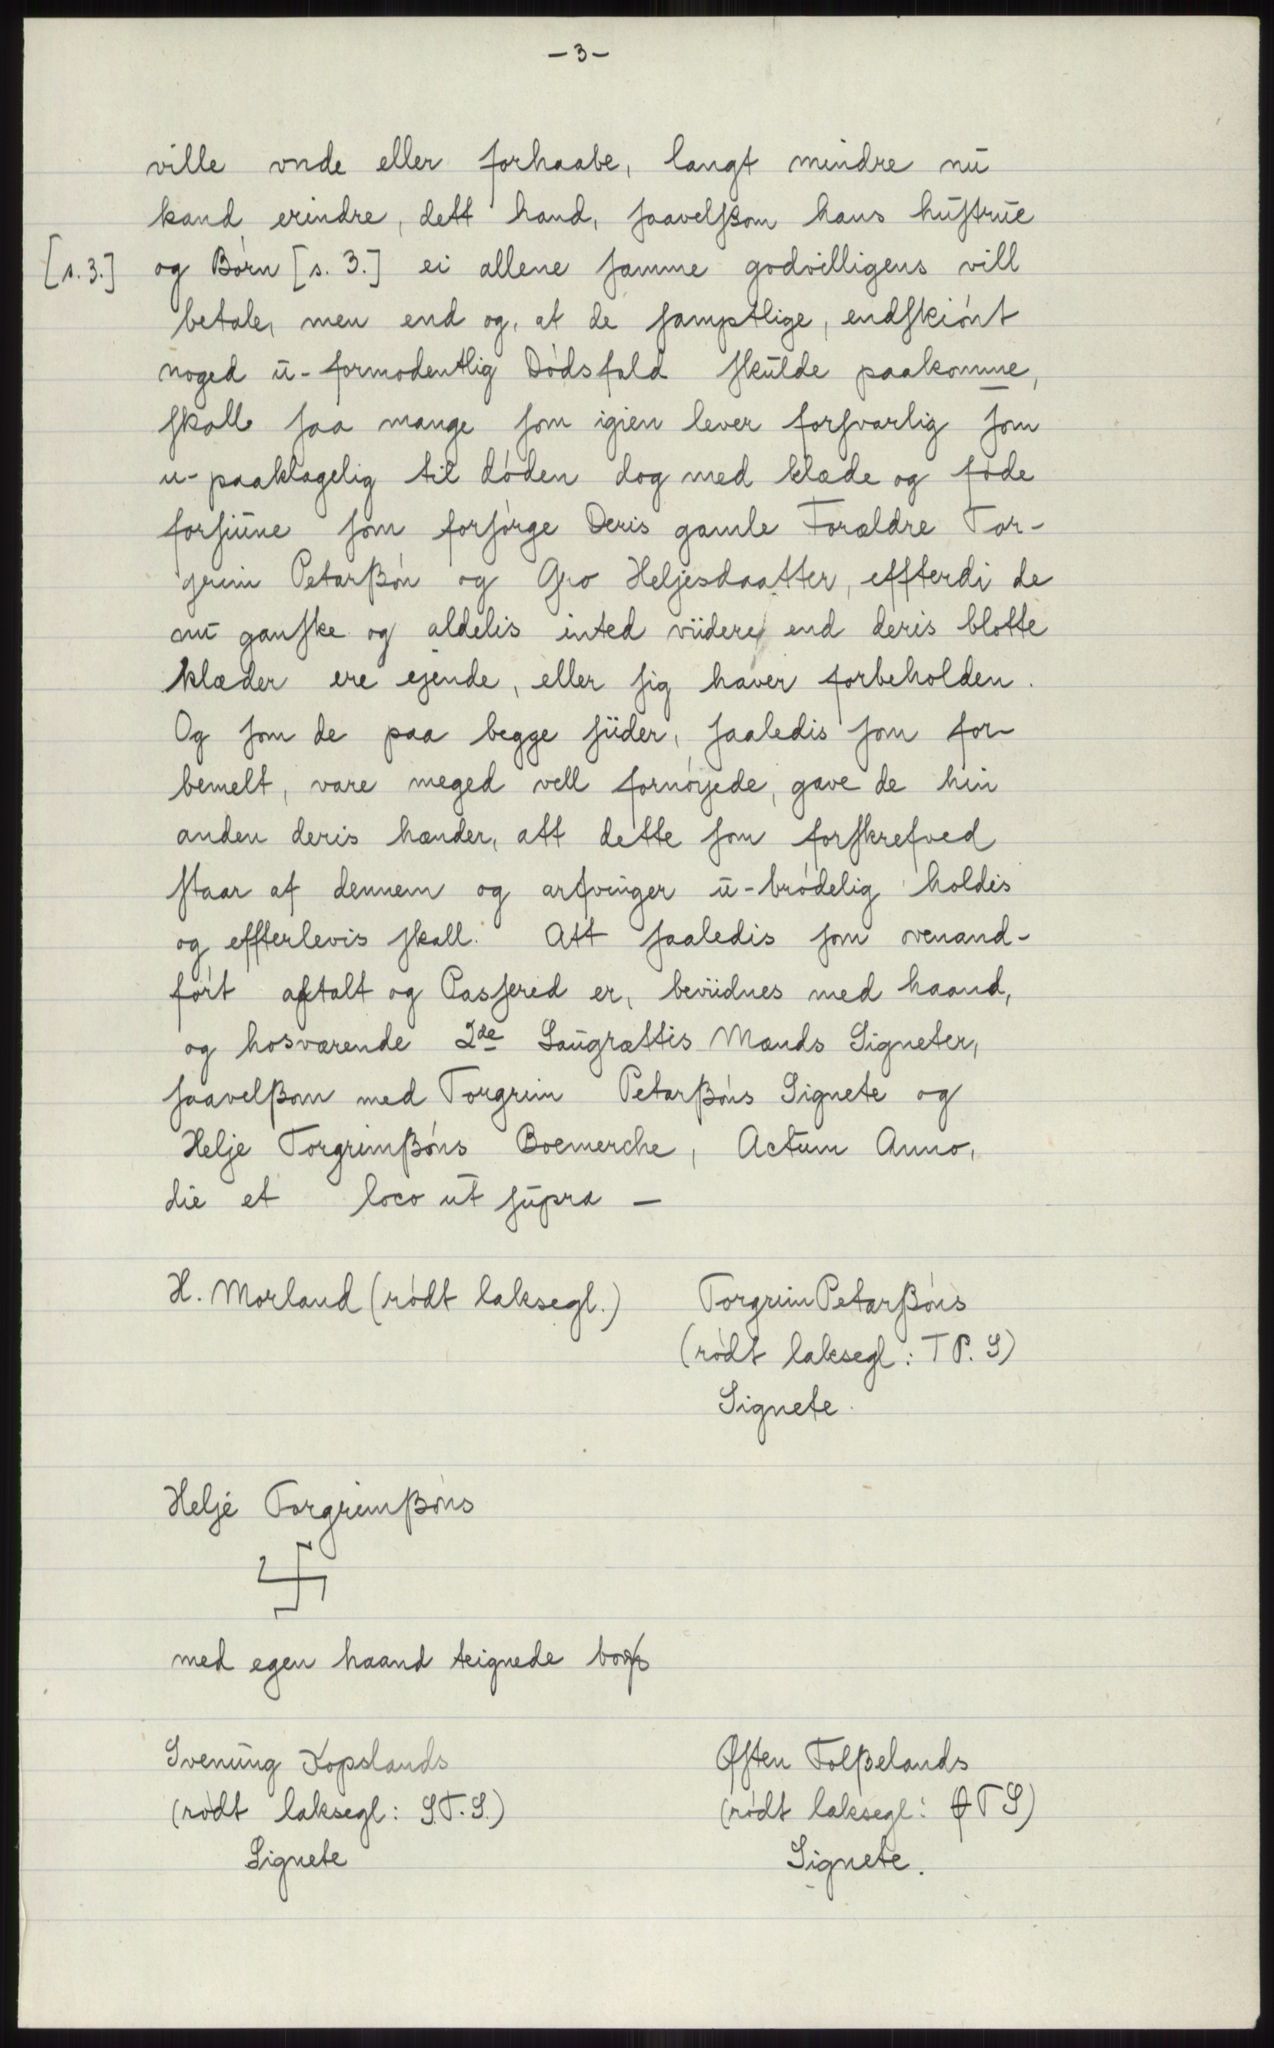 - 3 -
ville vnde eller forhaabe, langt mindre nu
kand erindre, dett hand, saavelsom hans hustrue
[s. 3.] og Børn [s. 3.] ei allene samme godvilligens vill
betale, men end og, at de samptlige, endskiønt
noged u-formodentlig Dødsfald skulde paakomme,
skall saa mange som igien lever forsvarlig som
u-paaklagelig til døden dog med klæde og føde
forsiune som forsørge Deris gamle Forældre Tor-
grim Petarßøn og Gro Heljesdaatter, effterdi de
nu ganske og aldelis inted viidere end deris blotte
klæder ere ejende, eller sig haver forbeholden.
Og som de paa begge siider, saaledis som for-
bemelt, vare meged vell fornøyede, gave de hin
anden deris hænder, att dette som forskrefved
staar af dennem og arfvinger u-brødelig holdis
og effterlevis skall. Att saaledis som ovenand-
ført aftalt og Passered er, beviidnes med haand,
og hosværende 2de Laugrættis Mænds Signeter,
saavelßom med Torgrim Petarßøns Signete og
Helje Torgrimßøns Boemerche, Actum Anno,
die et loco ut supra —
H. Morland (rødt laksegl.) Torgrim Petarßøns
(rødt laksegl: T P. S)
Signete.
Helje Torgrimßøns
med egen haand teignede
Svenung Kopslands Østen Folßelands
(rødt laksegl: S.T.S.) (rødt laksegl: Ø T S)
Signete Signete.